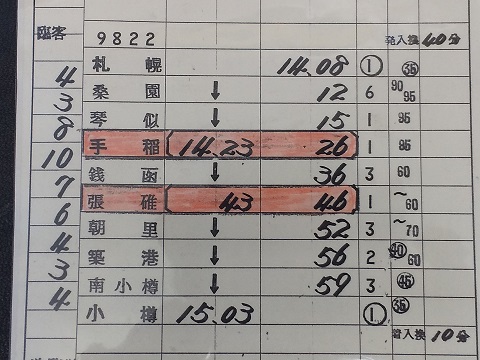 臨客 9822 発入換 40分
札幌 14.08 ① ㉟
4
桑園 ↓ 12 6 90 95
3
琴似 ↓ 15 1 85
8
手稲 (14.23 26) 1 85
10
銭函 ↓ 36 3 60
7
張碓 (43 46) 1 〜60
6
朝里 ↓ 52 3 〜70
4
築港 ↓ 56 2 ㊵ 60
3
南小樽 ↓ 59 3 ㊺
4
小樽 15.03 ① ㉟
着入換 10分